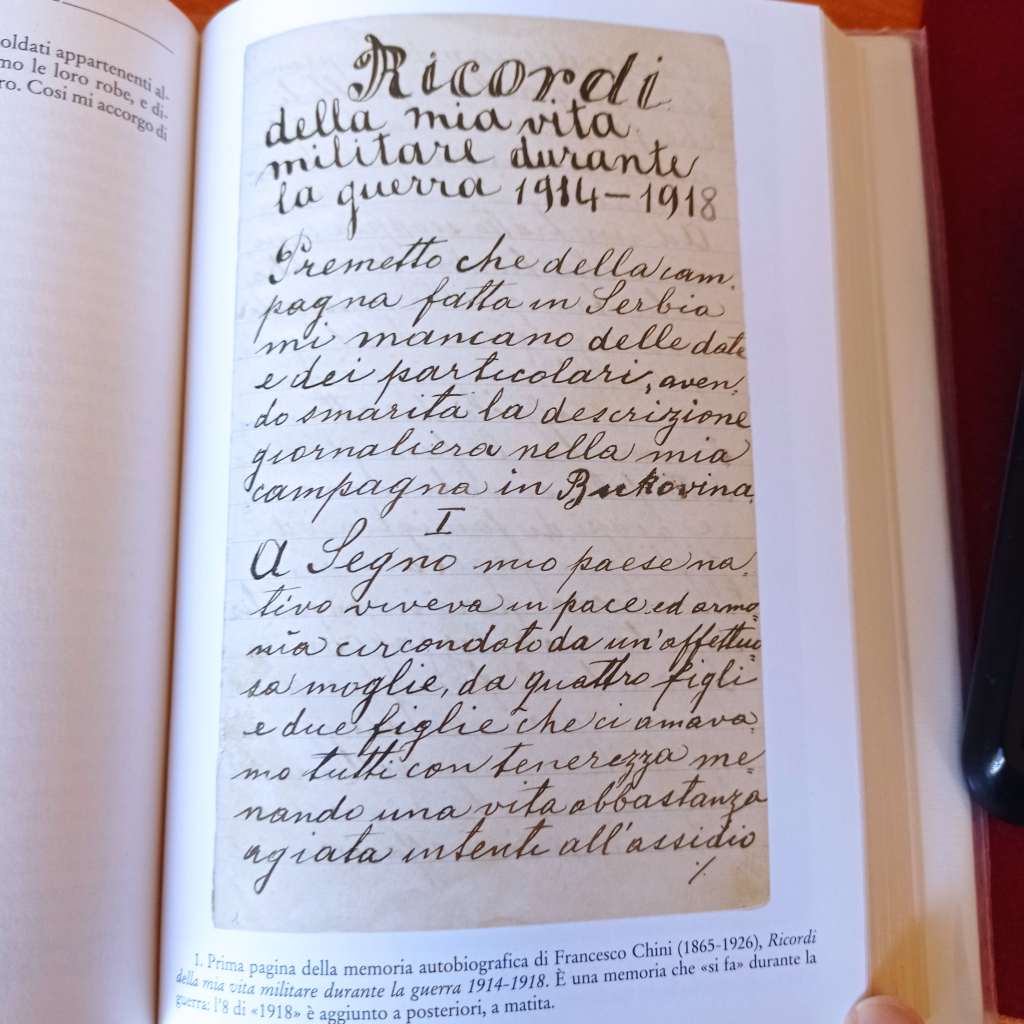 oldati appartenenti al-
mo le loro robe, e di-
ro. Così mi accorgo di
Ricordi
della mia vita
militare durante
la guerra 1914-1918
Premetto che della cam.
pagna fatta in Serbia
mi mancano delle date
e dei particolari, aven.
do smarita la descrizione
giornaliera nella mia
campagna in Bukovina.
I
A Segno mio paese na.
tivo viveva in pace ed armo=
nia circondato da un'affettuo
sa moglie, da quattro figli
e due figlie che ci amava.
mo tutti con tenerezza me=
nando una vita abbastanza
agiata intenti all'assidio
./.
1. Prima pagina della memoria autobiografica di Francesco Chini (1865-1926), Ricordi
della mia vita militare durante la guerra 1914-1918. È una memoria che «si fa» durante la
guerra: l'8 di «1918» è aggiunto a posteriori, a matita.